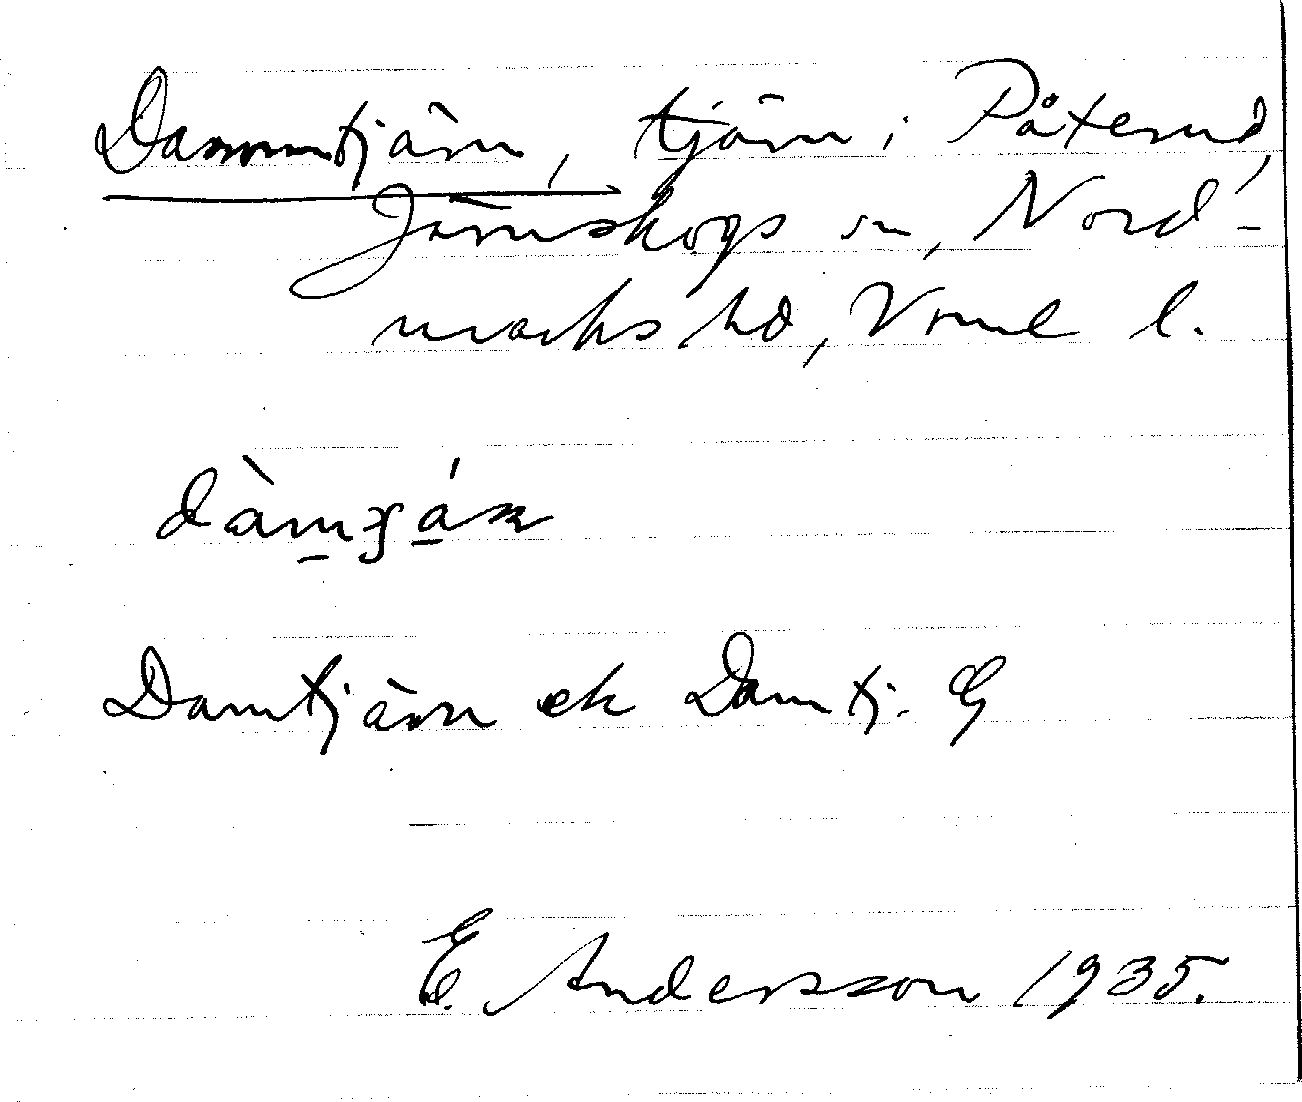 Dammtjärn, tjärn i Påterud,
Järnskogs sn, Nord-
marks hd, Vrml l.
Damtjärn ek Damtj. G
E. Andersson 1935.